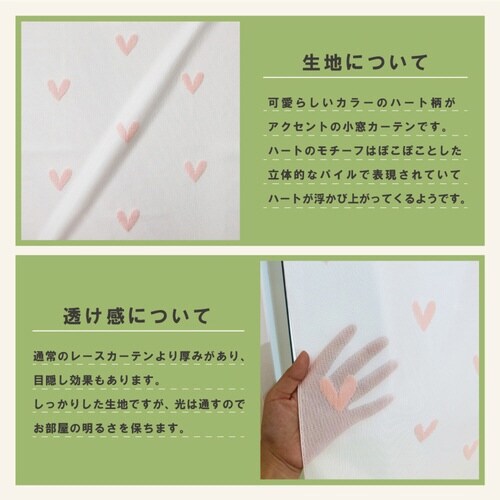 生地について
可愛らしいカラーのハート柄が
アクセントの小窓カーテンです。
ハートのモチーフはぽこぽことした
立体的なパイルで表現されていて
ハートが浮かび上がってくるようです。
透け感について
通常のレースカーテンより厚みがあり、
目隠し効果もあります。
しっかりした生地ですが、光は通すので
お部屋の明るさを保ちます。